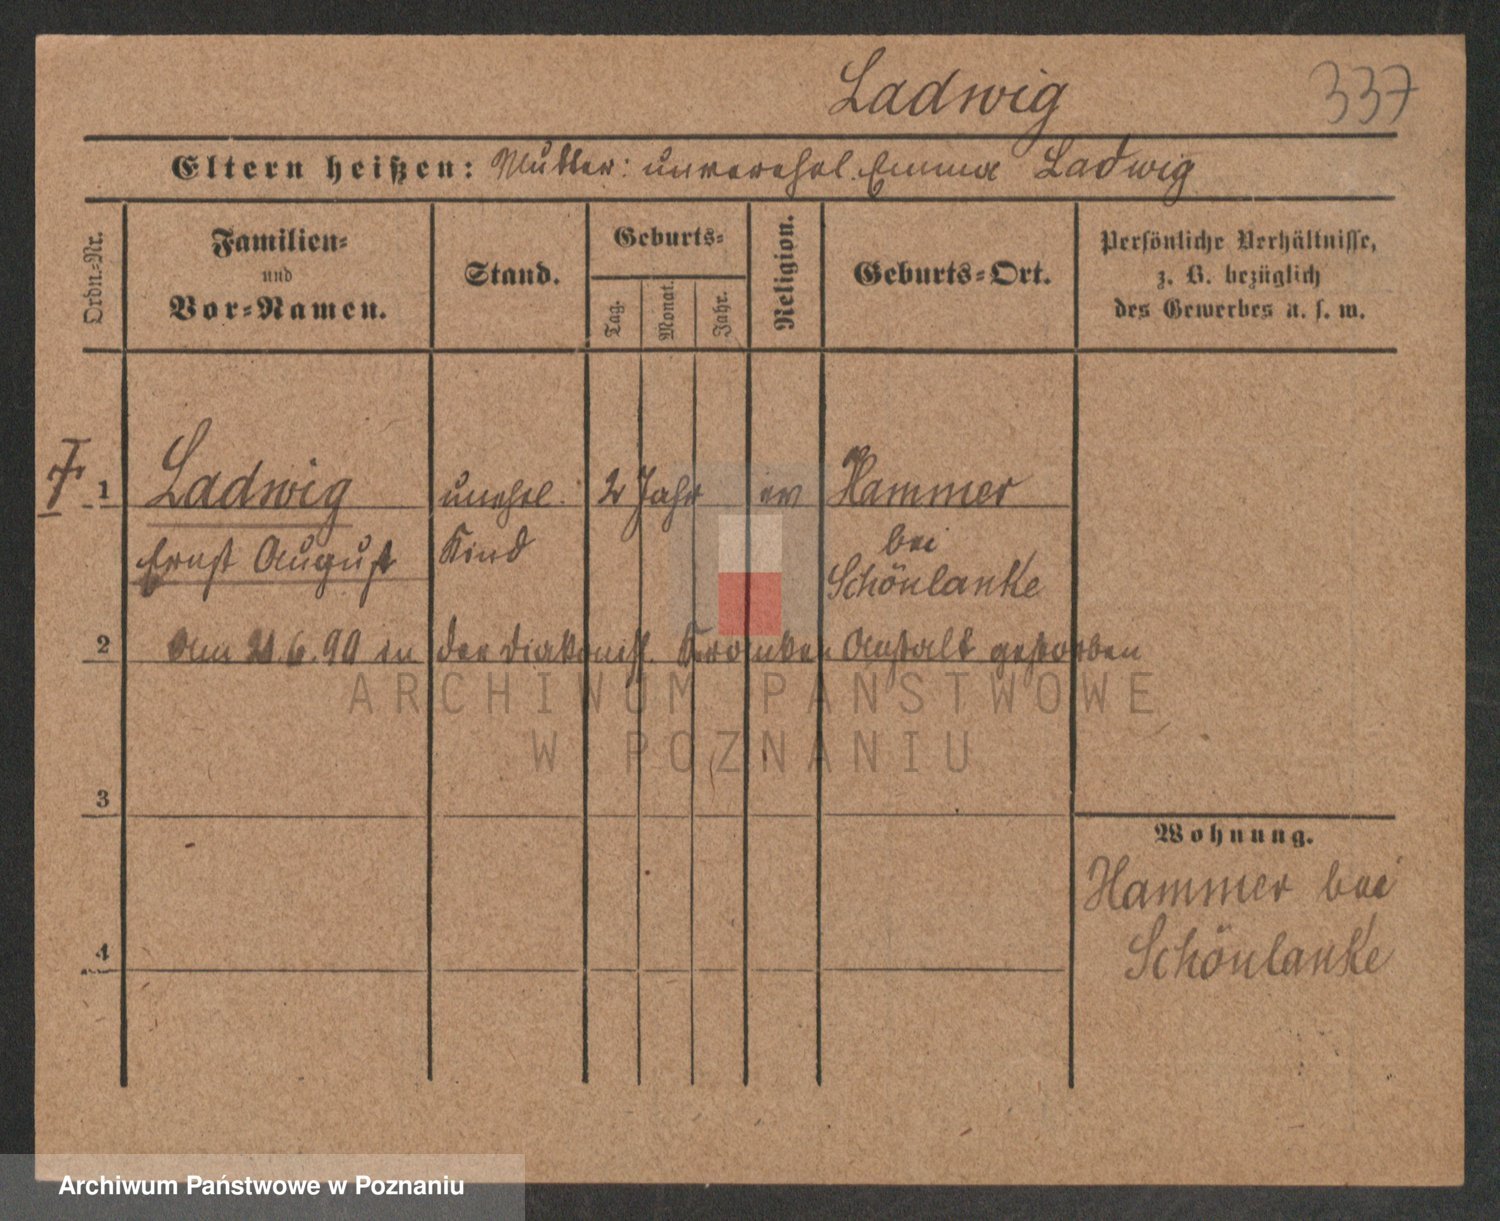 Ladwig 337
Eltern heißen: Mutter: unverehel. Emma Ladwig
Ordn.-Nr.
Familien-
und
Vor-Namen.
Stand.
Geburts-
Tag.
Monat.
Jahr.
Religion.
Geburts-Ort.
Persönliche Verhältnisse,
z. B. bezüglich
des Gewerbes u. s. w.
1 Ladwig unehel. 2 Jahr ev Hammer
Ernst August Kind bei
Schönlanke
2 am 21.6.90 in der Diakoniss. Kranken Anstalt gestorben
3
Wohnung.
Hammer bei
4 Schönlanke
ARCHIWUM PAŃSTWOWE
W POZNANIU
Archiwum Państwowe w Poznaniu